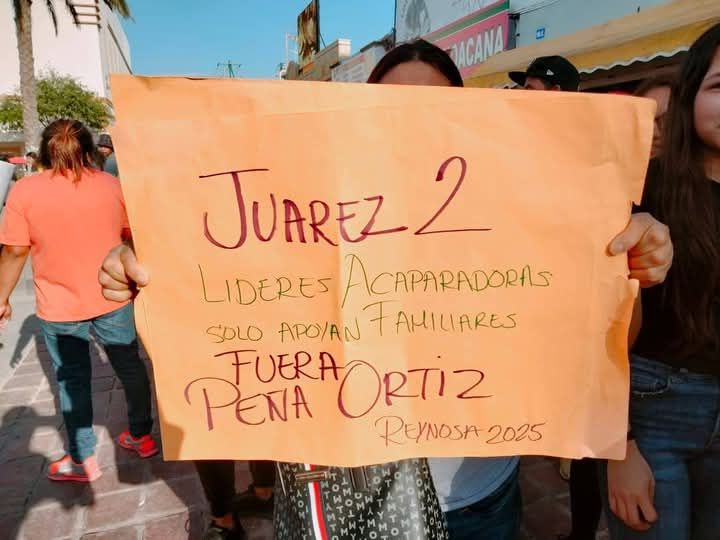 JUAREZ 2
LIDERES ACAPARADORAS
SOLO APOYAN FAMILIARES
FUERA
PEÑA ORTIZ
REYNOSA 2025